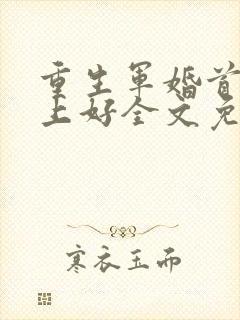 重生军婚首
上好全文免
寒衣玉而